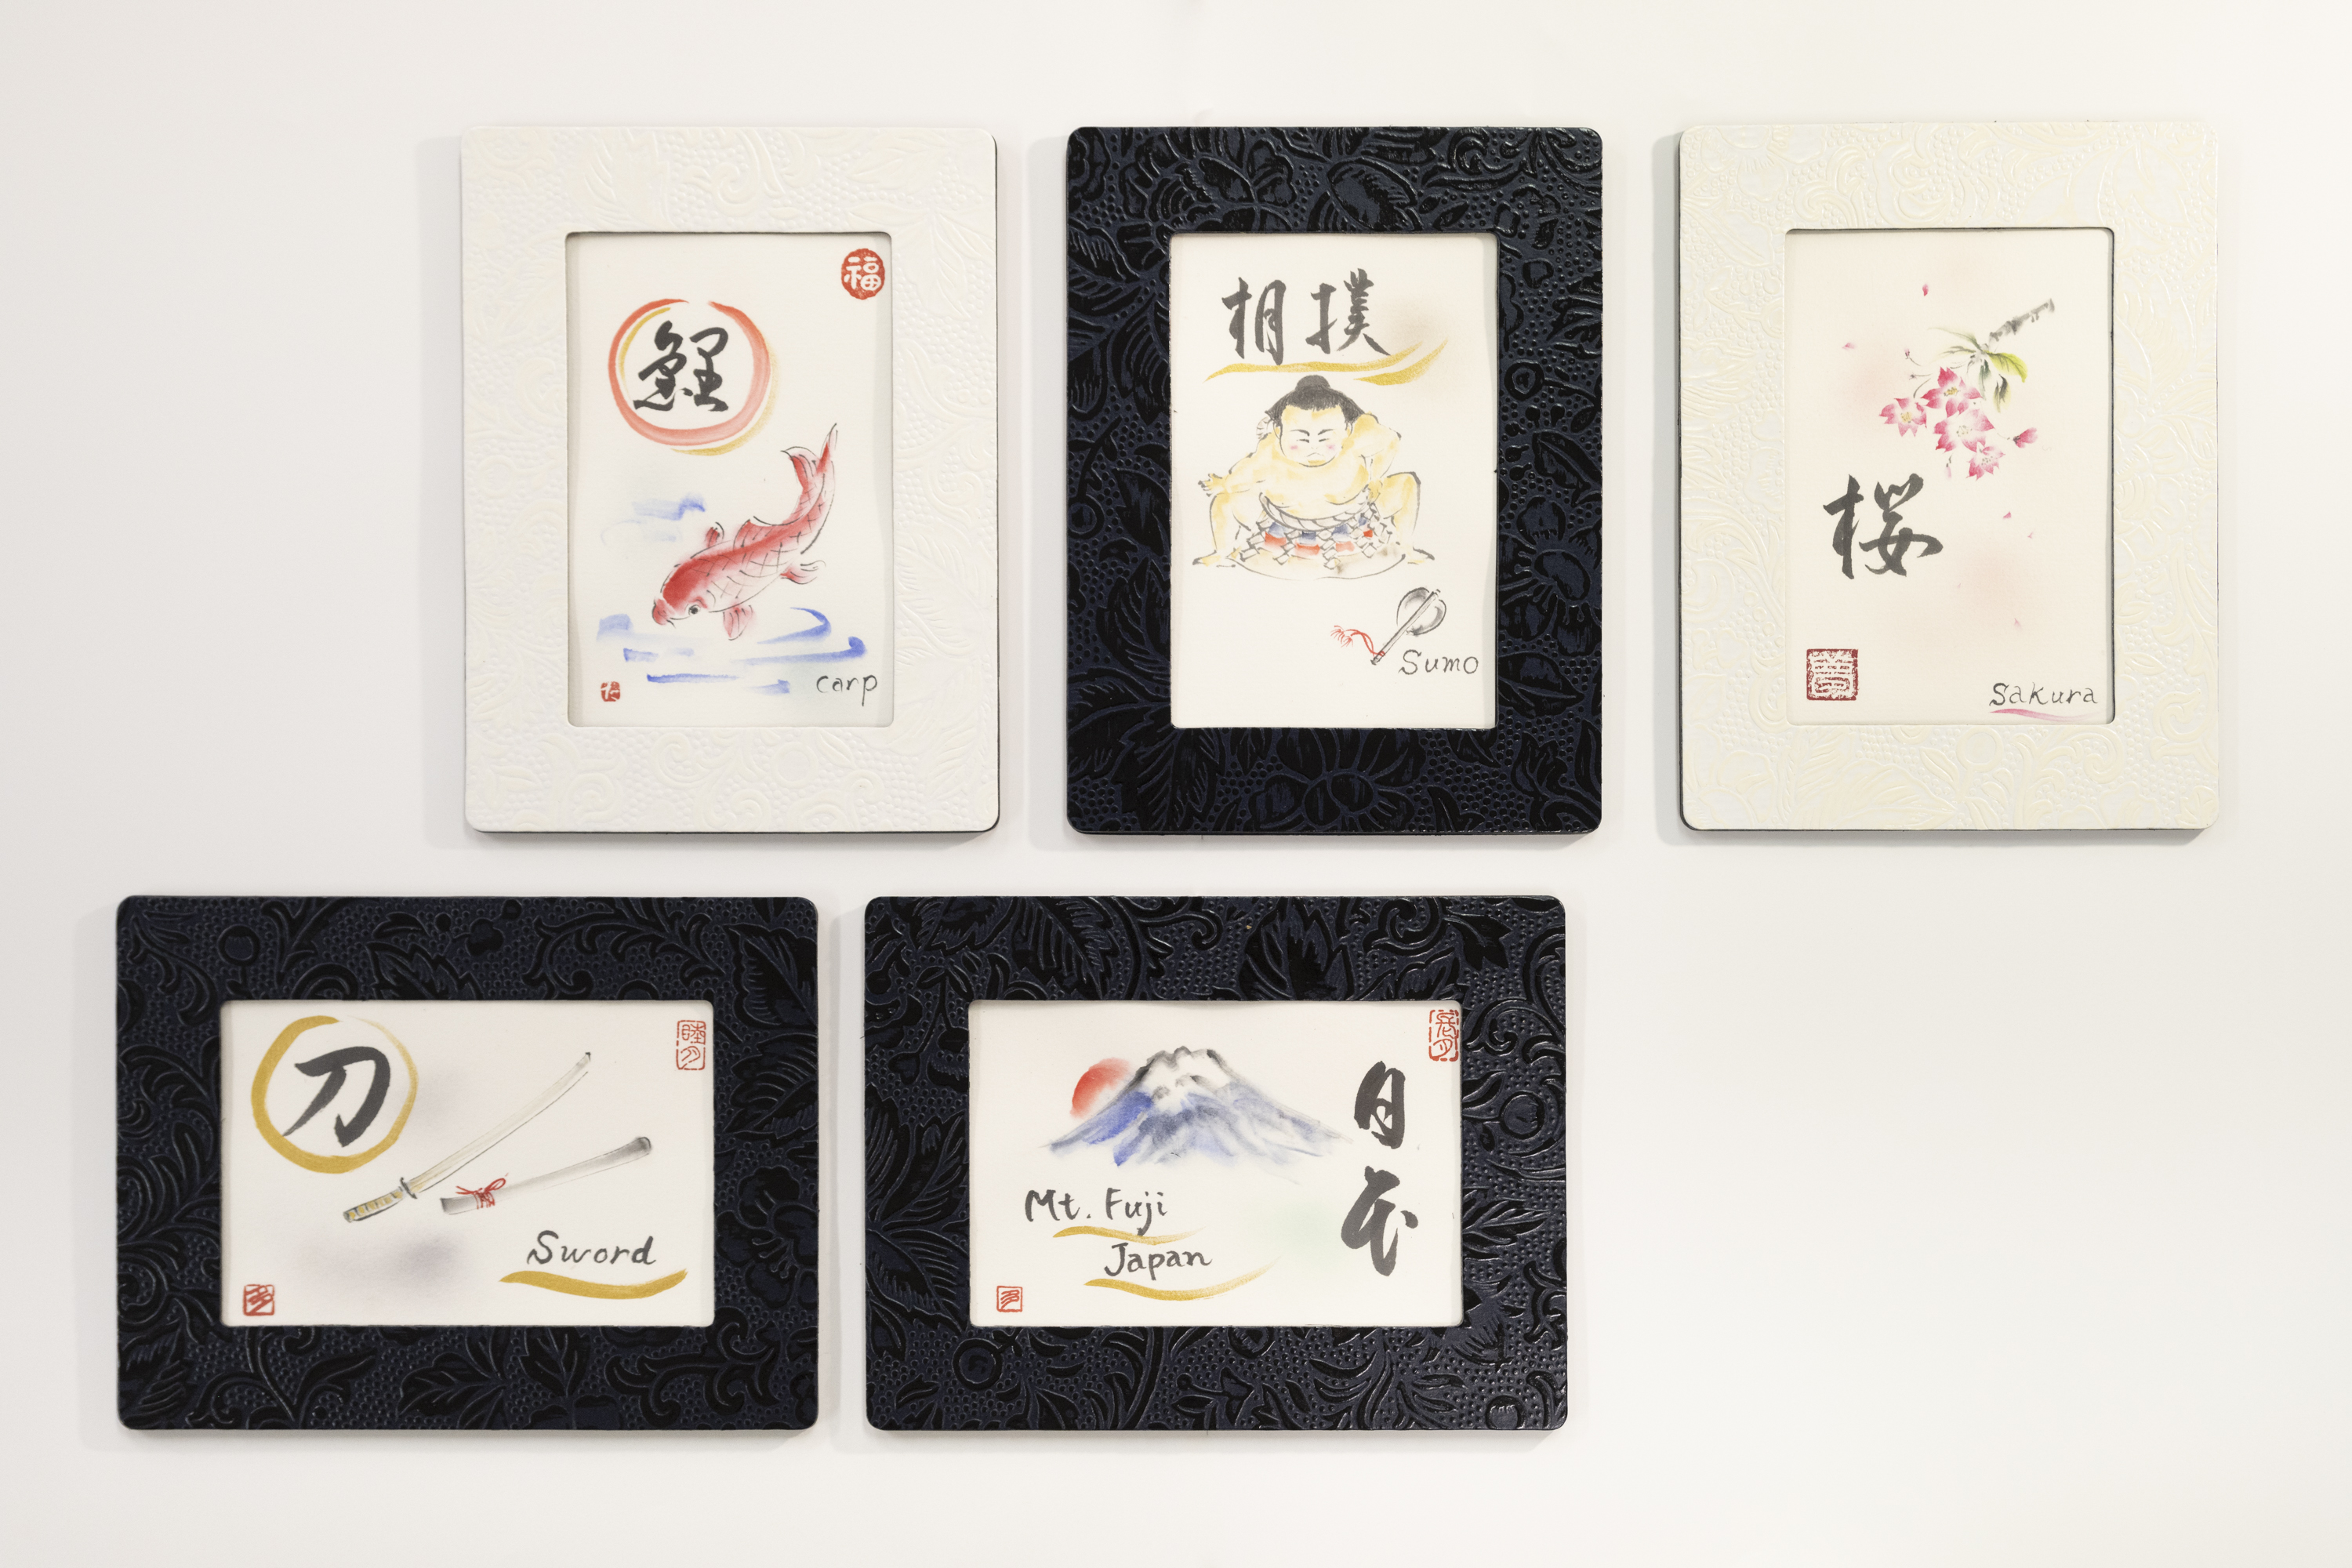 福
鯉
carp
相撲
Sumo
桜
Sakura
刀
Sword
Mt. Fuji
Japan
日本